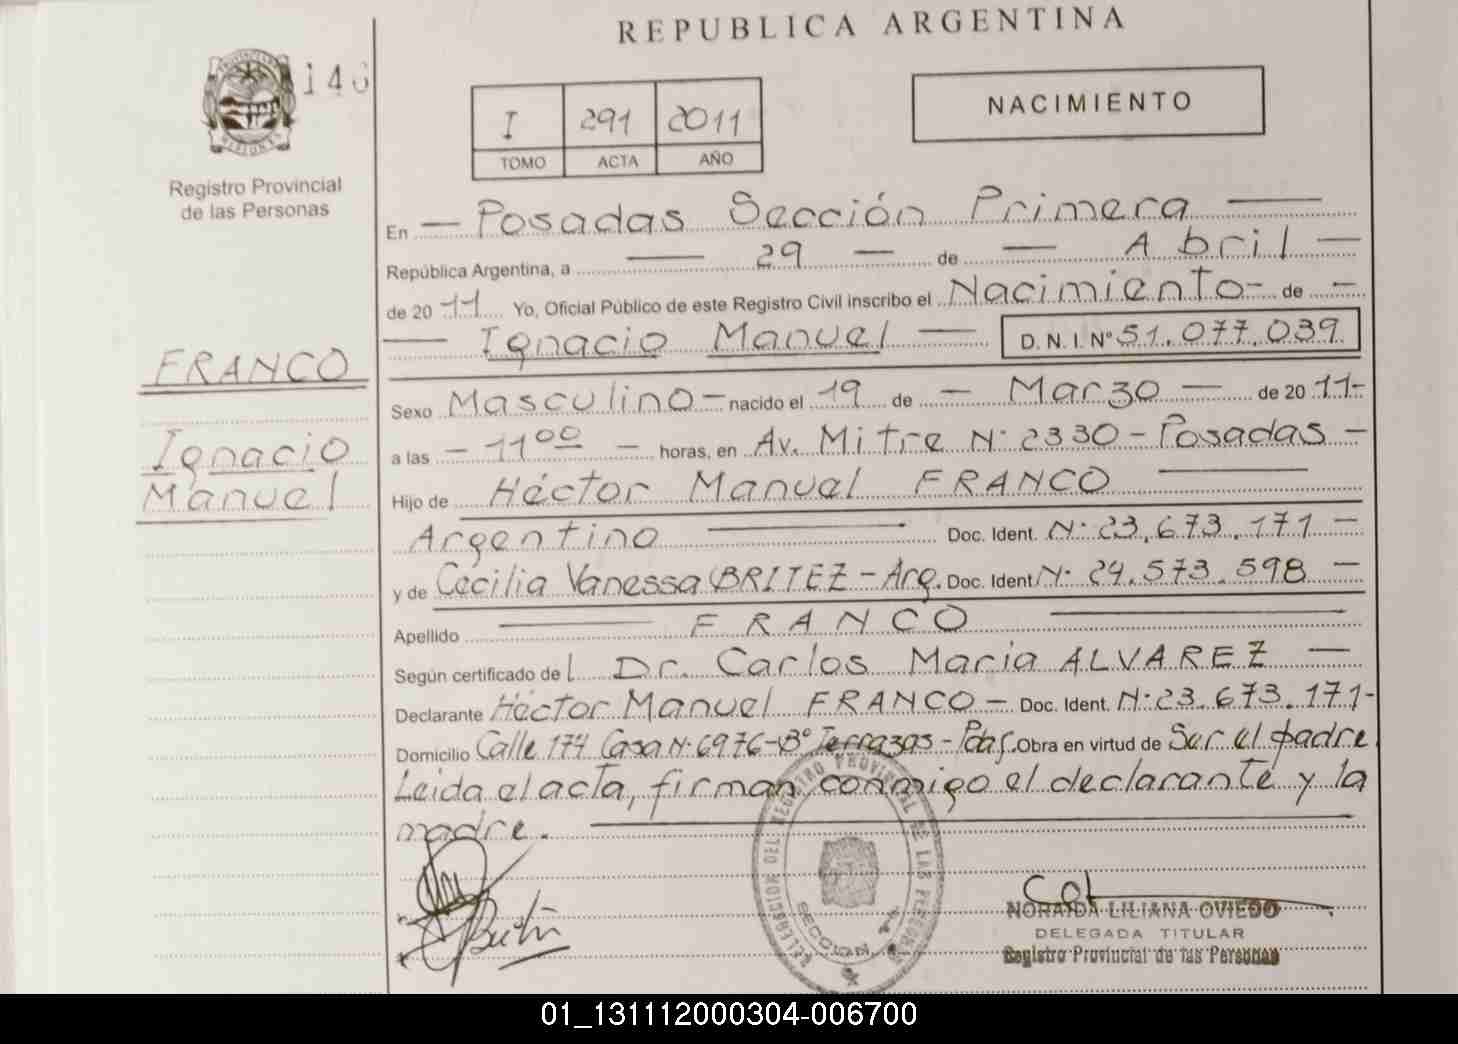 REPUBLICA ARGENTINA
146
I 291 2011
TOMO ACTA AÑO
NACIMIENTO
MISIONES
Registro Provincial
de las Personas
En — Posadas Sección Primera —
República Argentina, a — 29 — de — Abril —
de 2011 Yo, Oficial Público de este Registro Civil inscribo el Nacimiento - de -
— Ignacio Manuel — D.N.I. N° 51.077.039
FRANCO
Ignacio
Manuel
Sexo Masculino - nacido el 19 de - Marzo - de 2011-
a las - 11 00 - horas, en Av. Mitre N: 2330 - Posadas -
Hijo de Héctor Manuel FRANCO —
Argentino — Doc. Ident. N: 23.673.171 -
y de Cecilia Vanessa BRITEZ - Arg. Doc. Ident N: 24.573.598 -
Apellido — FRANCO —
Según certificado del Dr. Carlos Maria ALVAREZ —
Declarante Héctor Manuel FRANCO - Doc. Ident. N: 23.673.171-
Domicilio Calle 174 Casa N: 6976 - B° Terrazas - Pdas. Obra en virtud de Ser el padre.
Leida el acta, firman conmigo el declarante y la
madre. —
DELEGACION DEL REGISTRO PROVINCIAL DE LAS PERSONAS
SECCION 1ª
NORAIDA LILIANA OVIEDO
DELEGADA TITULAR
Registro Provincial de las Personas
01_131112000304-006700